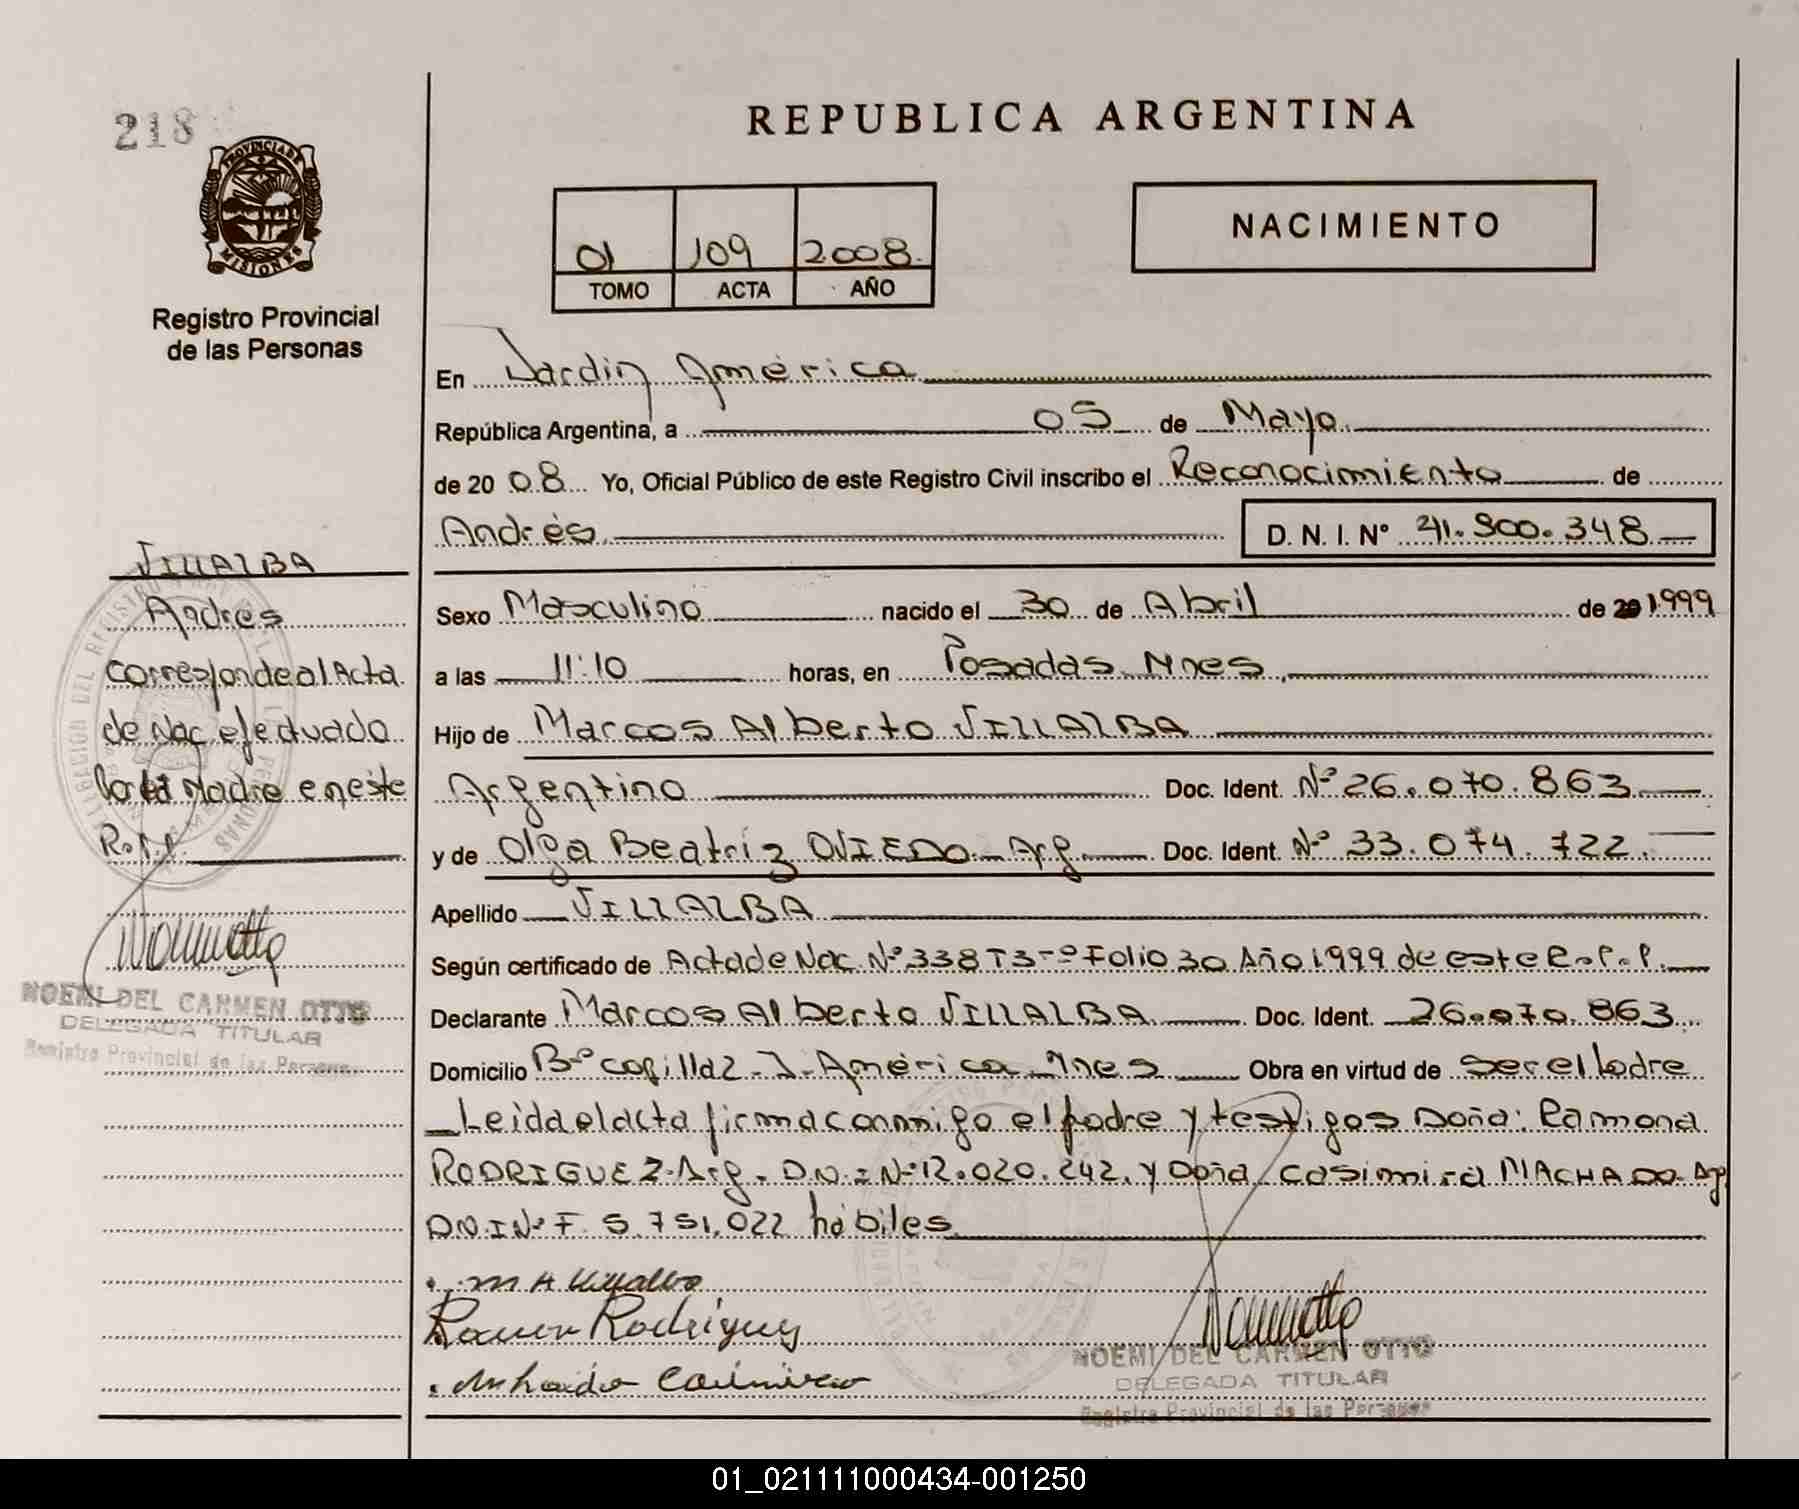 218
PROVINCIA DE
MISIONES
Registro Provincial
de las Personas
REPUBLICA ARGENTINA
01 109 2008
TOMO ACTA AÑO
NACIMIENTO
En Jardin América
República Argentina, a 05 de Mayo
de 2008 Yo, Oficial Público de este Registro Civil inscribo el Reconocimiento de
Andrés D. N. I. Nº 41.900.348
Sexo Masculino nacido el 30 de Abril de 20 1999
a las 11:10 horas, en Posadas Mnes
Hijo de Marcos Alberto VILLALBA
Argentino Doc. Ident. Nº 26.070.863
y de Olga Beatriz OVIEDO Arg. Doc. Ident. Nº 33.074.722
Apellido VILLALBA
Según certificado de Acta de Nac. Nº 338 T3-º Folio 30 Año 1999 de este R.P.P.
Declarante Marcos Alberto VILLALBA Doc. Ident. 26.070.863
Domicilio Bº Capilla 2-J. América Mnes Obra en virtud de ser el Padre
Leida el acta firma conmigo el padre y testigos Doña: Ramona
RODRIGUEZ-Arg. D.N.I Nº 12.020.242. y Doña Casimira MACHADO-Arg
D.N.I Nº F 5.751.022 hábiles
M A Villalba
Rodriguez
NOEMI DEL CARMEN OTTO
DELEGADA TITULAR
Registro Provincial de las Personas
VILLALBA
Andrés
Corresponde al Acta
de Nac. efectuado
por la Madre en este
R.P.P.
NOEMI DEL CARMEN OTTO
DELEGADA TITULAR
Registro Provincial de las Personas
01_021111000434-001250